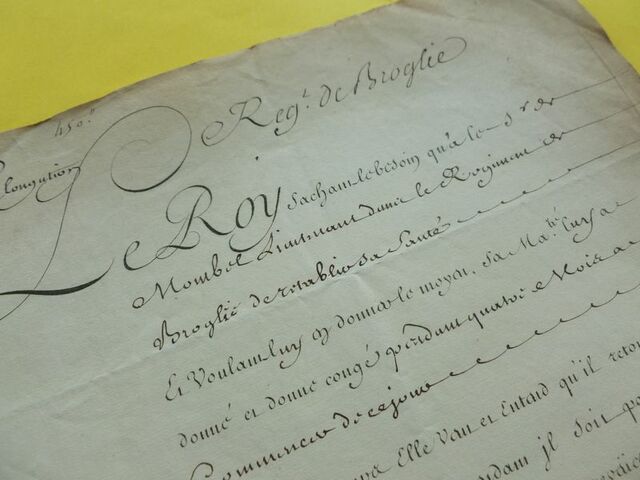 450.
Regt. de Broglie
longation
Le Roy sachant le besoin qu'a le Sr. de
Mombel Lieutenant dans le Regiment de
Broglie de retablir sa Santé
Et Voulant luy en donner le moyen, Sa Maté. luy a
donné et donne congé pendant quatre Mois a
Commencer de ce jour
Elle Veut et Entend qu'il
il soit